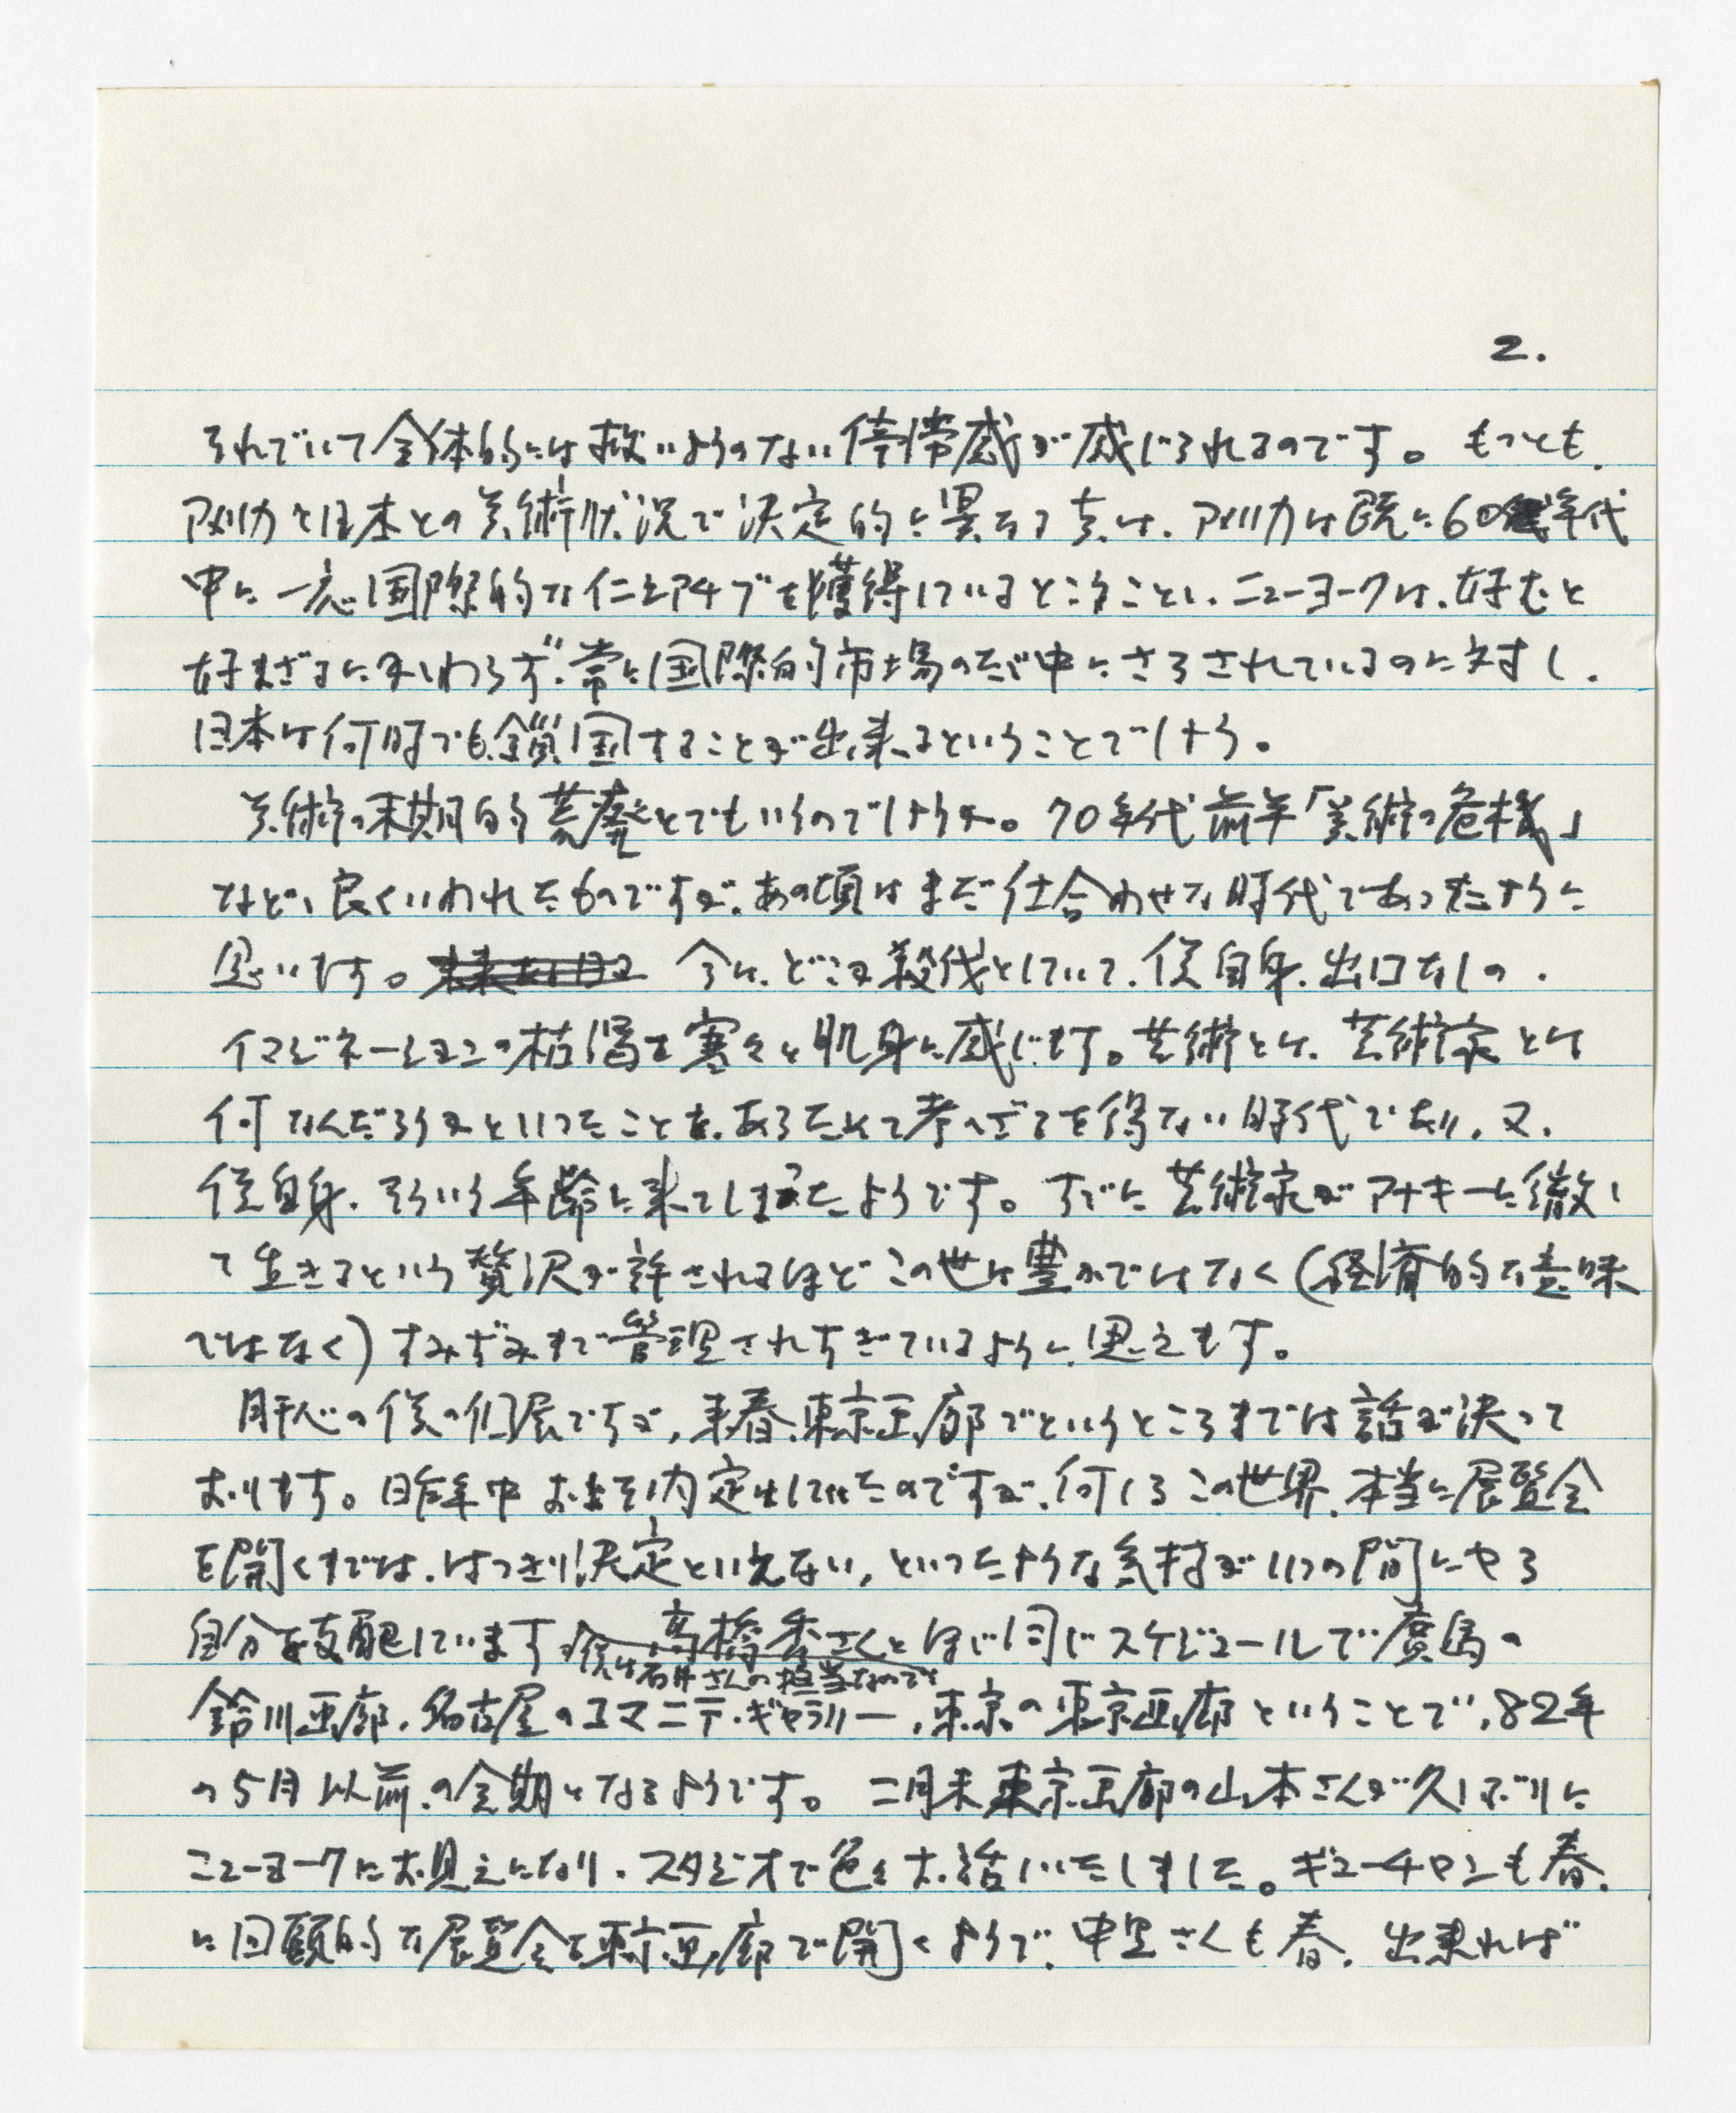 2.
それでいて全体的には救いようのない停滞感が感じられるのです。もっとも、
アメリカと日本との美術状況で決定的に異なる点は、アメリカは既に60年代
中に一応国際的なイニシアチブを獲得しているということと、ニューヨークは、好むと
好まざるにかかわらず、常に国際的市場のただ中にさらされているのに対し、
日本は何時でも鎖国することが出来るということでしょう。
美術の末期的荒廃とでもいうのでしょうか。70年代前半「美術の危機」
などと良くいわれたものですが、あの頃はまだ仕合わせな時代であったように
思います。今は、どこか殺伐としていて、僕自身、出口なしの、
イマジネーションの枯渇を寒々と肌身に感じます。芸術とは、芸術家とは
何なんだろうかといったことを、あらためて考へざるを得ない時代であり、又、
僕自身、そういう年齢に来てしまったようです。すでに芸術家がアナキーに徹し
て生きるという贅沢が許されるほどこの世は豊かではなく(経済的な意味
ではなく)すみずみまで管理されすぎているように思えます。
肝心の僕の個展ですが、来春、東京画廊でというところまでは話が決って
おります。昨年中およそ内定はしていたのですが、何しろこの世界、本当に展覧会
を開くまでは、はっきり決定といえない、といったような気持がいつの間にやら
自分を支配しています。高橋秀さんとほぼ同じスケジュールで廣島の
(僕は石井さんの担当なのです)
鈴川画廊、名古屋のユマニテ・ギャラリー、東京の東京画廊ということで、82年
の5月以前の会期となるようです。二月末東京画廊の山本さんが久しぶりに
ニューヨークにお見えになり、スタジオで色々お話しいたしました。ギューチャンも春、
に回顧的な展覧会を東京画廊で開くようで、中里さんも春、出来れば